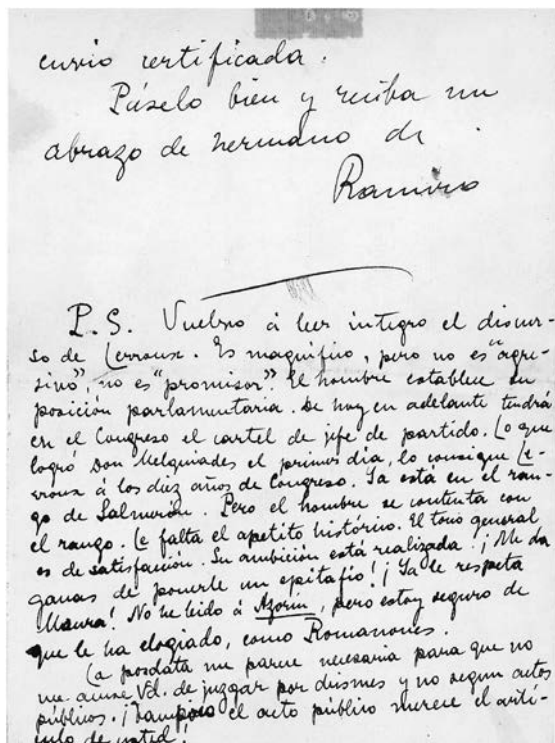 envio certificada.
Páselo bien y reciba un
abrazo de hermano de
Ramiro
P.S. Vuelvo á leer integro el discur-
so de Lerroux. Es magnífico, pero no es "agre-
sivo", no es "promisor". El hombre establece su
posición parlamentaria. De hoy en adelante tendrá
en el Congreso el cartel de jefe de partido. Lo que
logró Don Melquiades el primer día, lo consigue Le-
rroux á los diez años de Congreso. Ya está en el ran-
go de Salmerón. Pero el hombre se contenta con
el rango. Le falta el apetito histórico. El tono general
es de satisfacción. Su ambición está realizada. ¡Me da
ganas de ponerle un epitafio! ¡Ya le respeta
Maura! No he leido á Azorin, pero estoy seguro de
que le ha elogiado, como Romanones.
La posdata me parece necesaria para que no
me acuse Vd. de juzgar por chismes y no segun actos
públicos. ¡Tampoco el acto público merece el artí-
culo de usted!